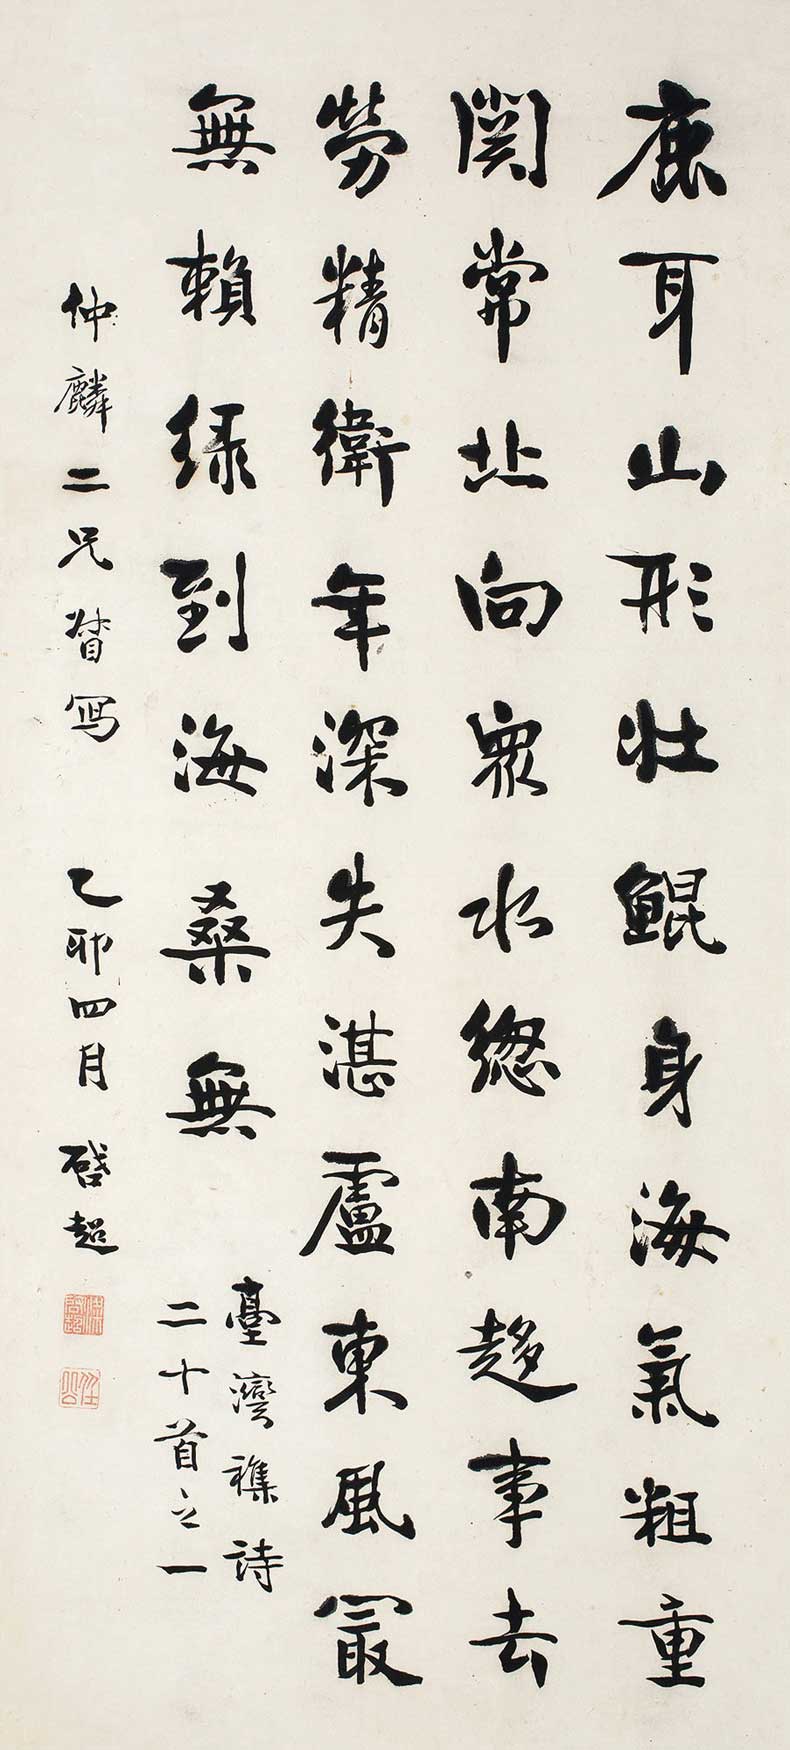 鹿耳山形壮鯤身海氣粗重
関常北向眾水總南趍事去
勞精衛年深失湛盧東風冣
無賴绿到海桑無
臺灣襍詩
二十首之一
仲麟二兄督寫
乙卯四月啓超
梁啓超
任公